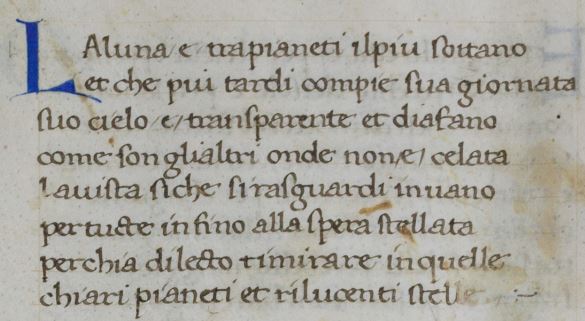 LAluna e trapianeti ilpiu sottano
et che pui tardi compie sua giornata
suo cielo /e/ transparente et diafano
come son glialtri onde none/ celata
Lauista siche sirasguardi inuano
per tucte infino alla spera stellata
perchia dilecto rimirare inquelle
chiari pianeti et rilucenti stelle :~